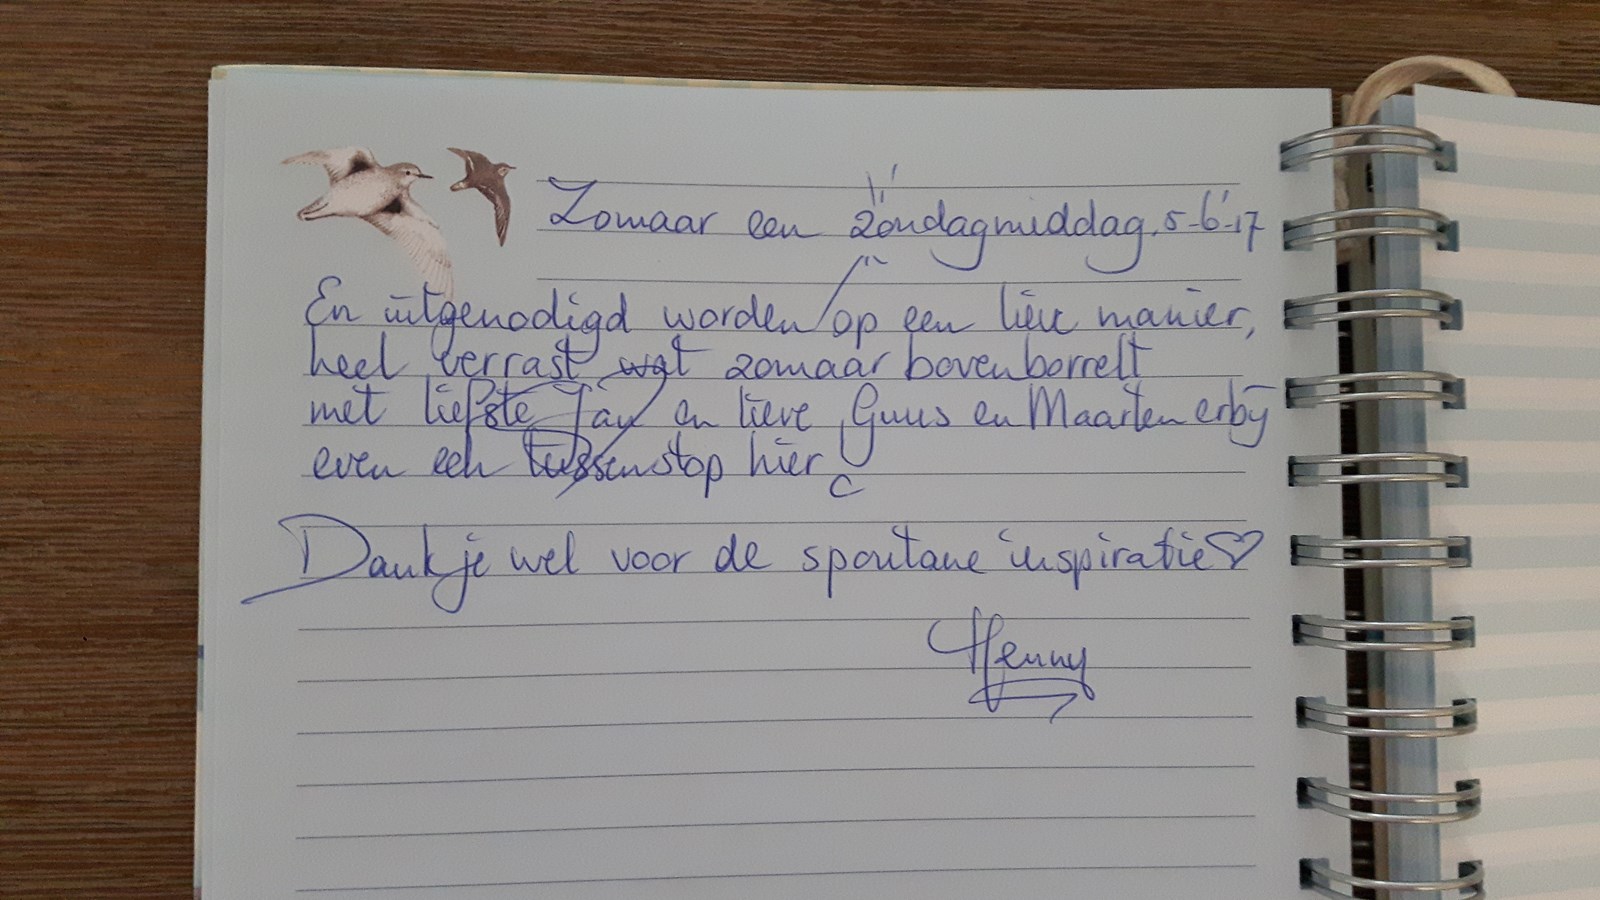 Zomaar een zondagmiddag. 5-6-17
En uitgenodigd worden op een lieve manier,
heel verrast wat zomaar bovenborrelt
met liefste Jay en lieve Guus en Maarten erbij
even een tussenstop hier
Dank je wel voor de spontane inspiratie♡
Henny